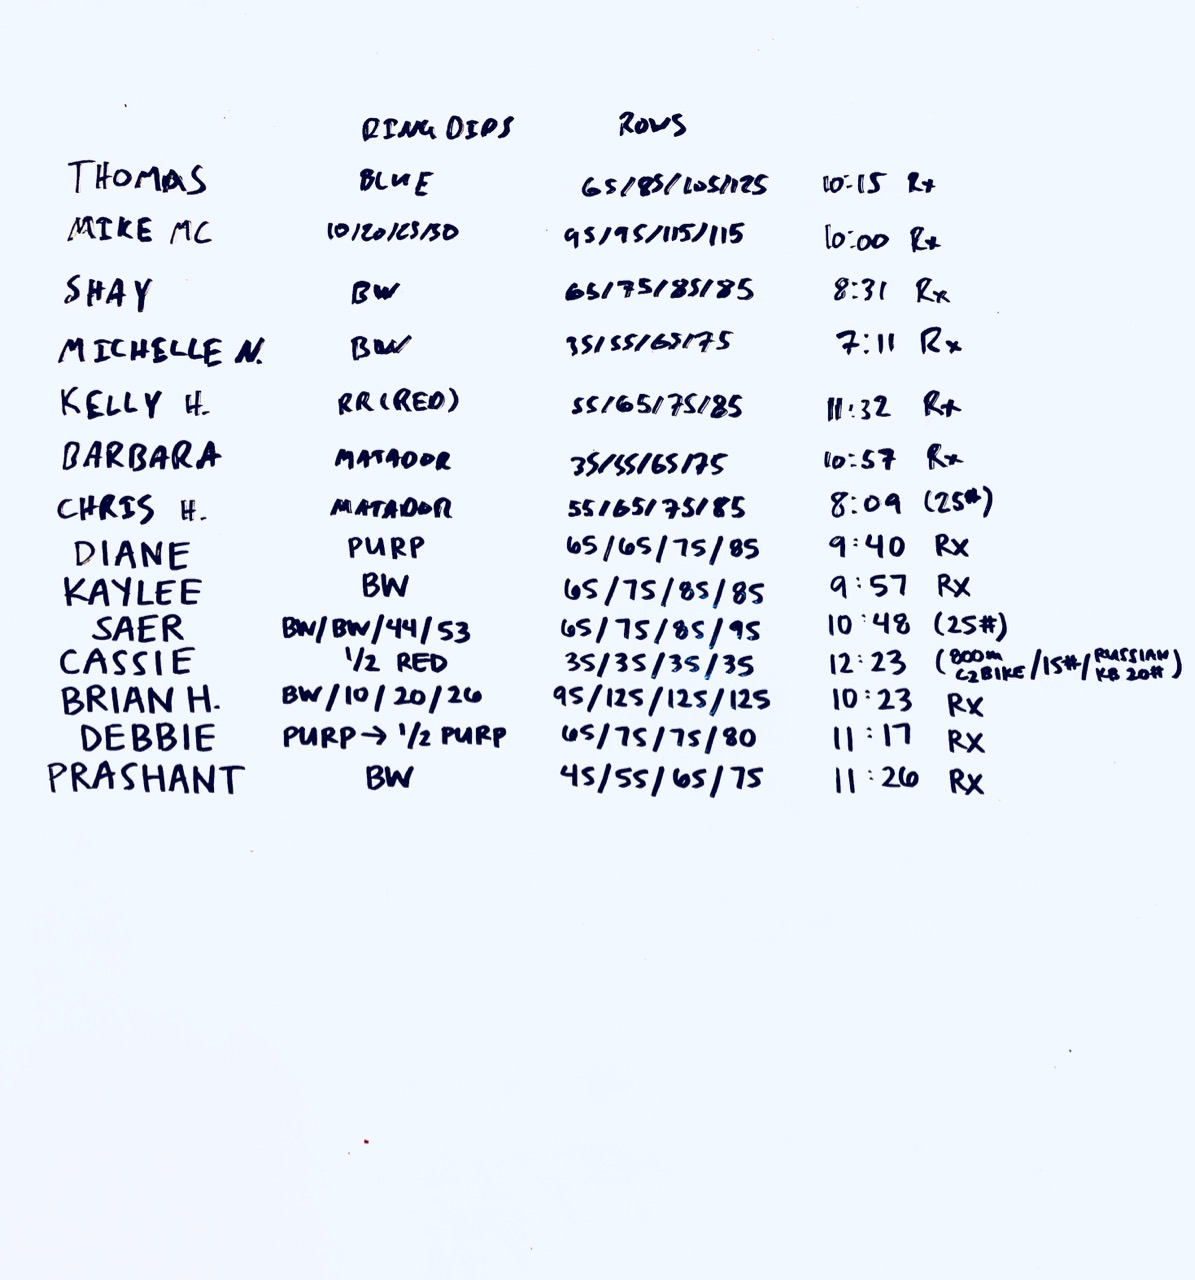 RING DIPS ROWS
THOMAS BLUE 65/85/105/125 10:15 Rx
MIKE MC 10/20/25/30 95/95/115/115 10:00 Rx
SHAY BW 65/75/85/85 8:31 Rx
MICHELLE N. BW 35/55/65/75 7:11 Rx
KELLY H. RR (RED) 55/65/75/85 11:32 Rx
BARBARA MATADOR 35/55/65/75 10:57 Rx
CHRIS H. MATADOR 55/65/75/85 8:09 (25#)
DIANE PURP 65/65/75/85 9:40 RX
KAYLEE BW 65/75/85/85 9:57 RX
SAER BW/BW/44/53 65/75/85/95 10:48 (25#)
CASSIE 1/2 RED 35/35/35/35 12:23 (800m C2 BIKE/15#/RUSSIAN KB 20#)
BRIAN H. BW/10/20/26 95/125/125/125 10:23 RX
DEBBIE PURP → 1/2 PURP 65/75/75/80 11:17 RX
PRASHANT BW 45/55/65/75 11:26 RX